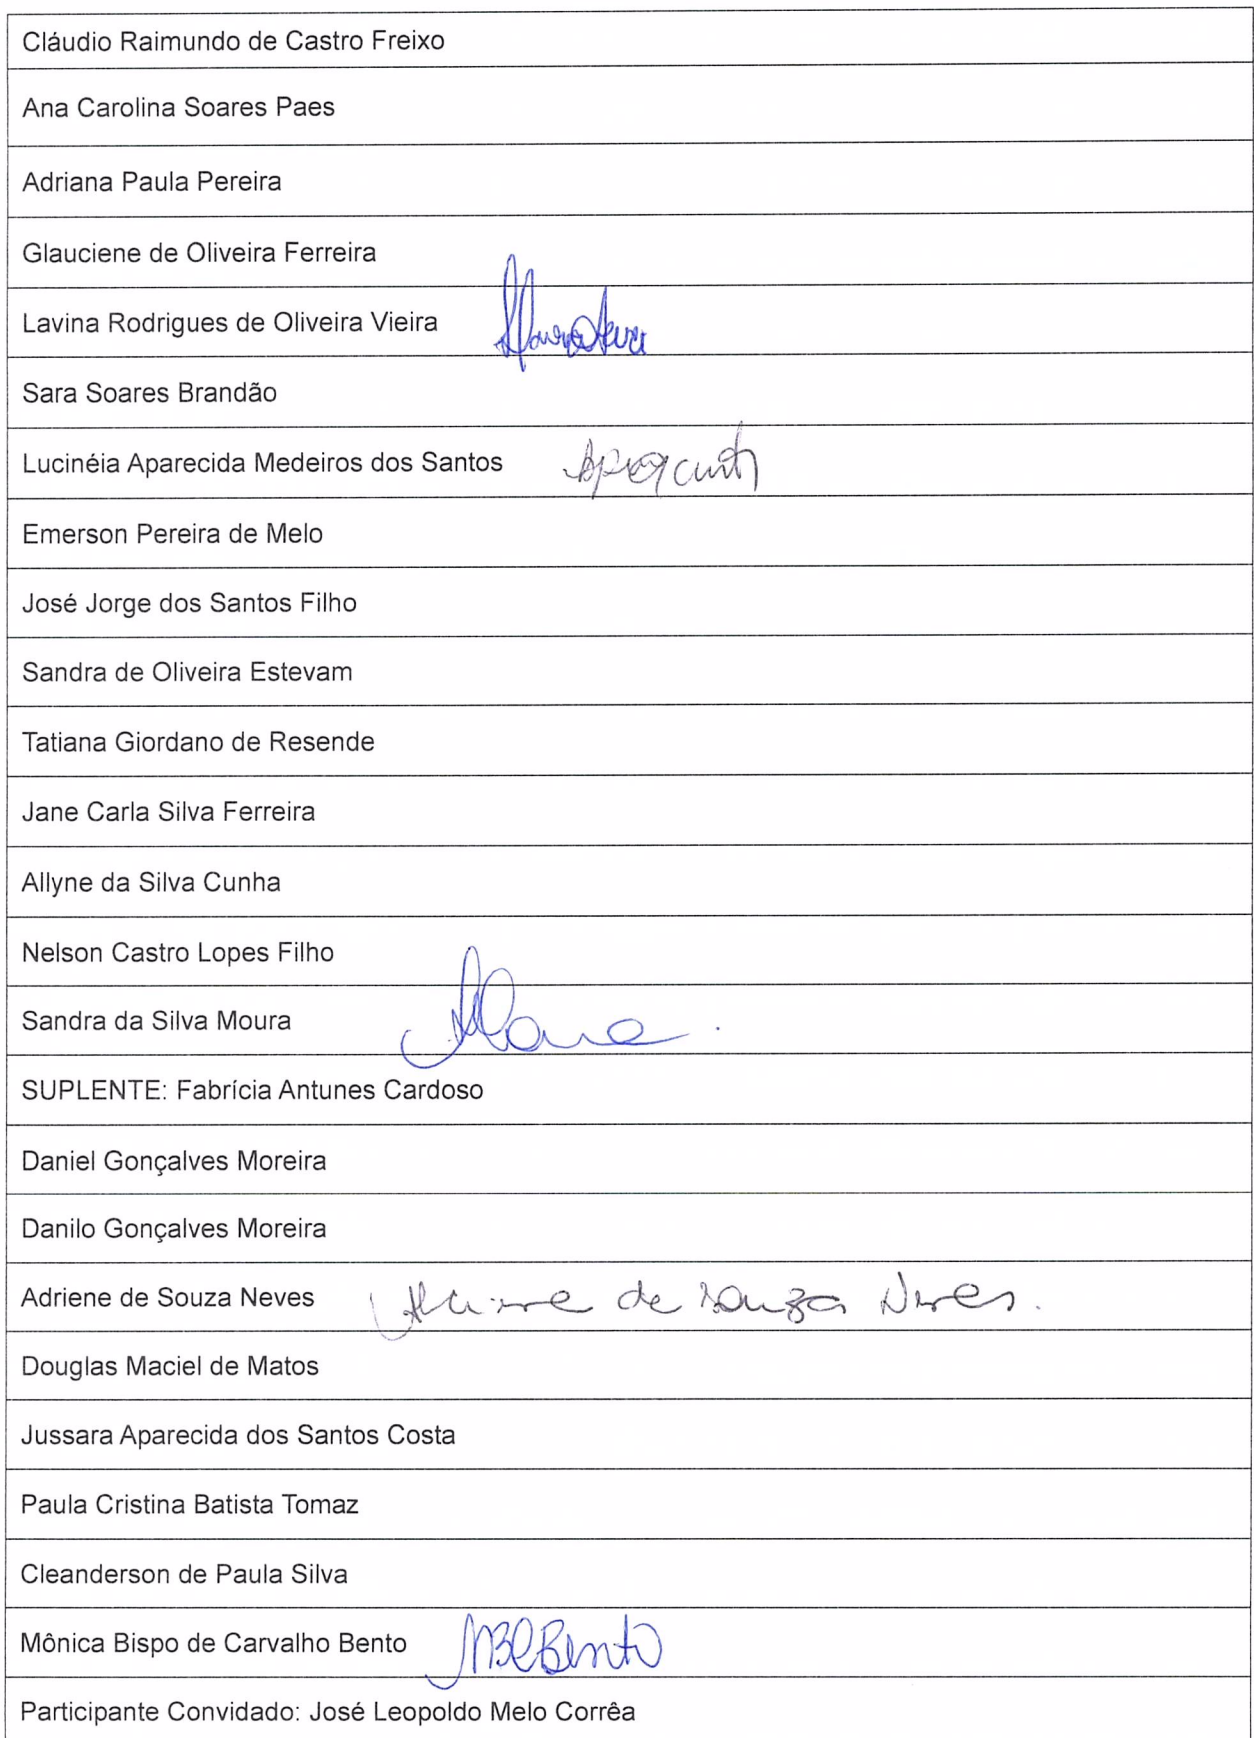 Cláudio Raimundo de Castro Freixo
Ana Carolina Soares Paes
Adriana Paula Pereira
Glauciene de Oliveira Ferreira
Lavina Rodrigues de Oliveira Vieira
Sara Soares Brandão
Lucinéia Aparecida Medeiros dos Santos
Emerson Pereira de Melo
José Jorge dos Santos Filho
Sandra de Oliveira Estevam
Tatiana Giordano de Resende
Jane Carla Silva Ferreira
Allyne da Silva Cunha
Nelson Castro Lopes Filho
Sandra da Silva Moura
SUPLENTE: Fabrícia Antunes Cardoso
Daniel Gonçalves Moreira
Danilo Gonçalves Moreira
Adriene de Souza Neves de Souza Neves.
Douglas Maciel de Matos
Jussara Aparecida dos Santos Costa
Paula Cristina Batista Tomaz
Cleanderson de Paula Silva
Mônica Bispo de Carvalho Bento MBCBento
Participante Convidado: José Leopoldo Melo Corrêa